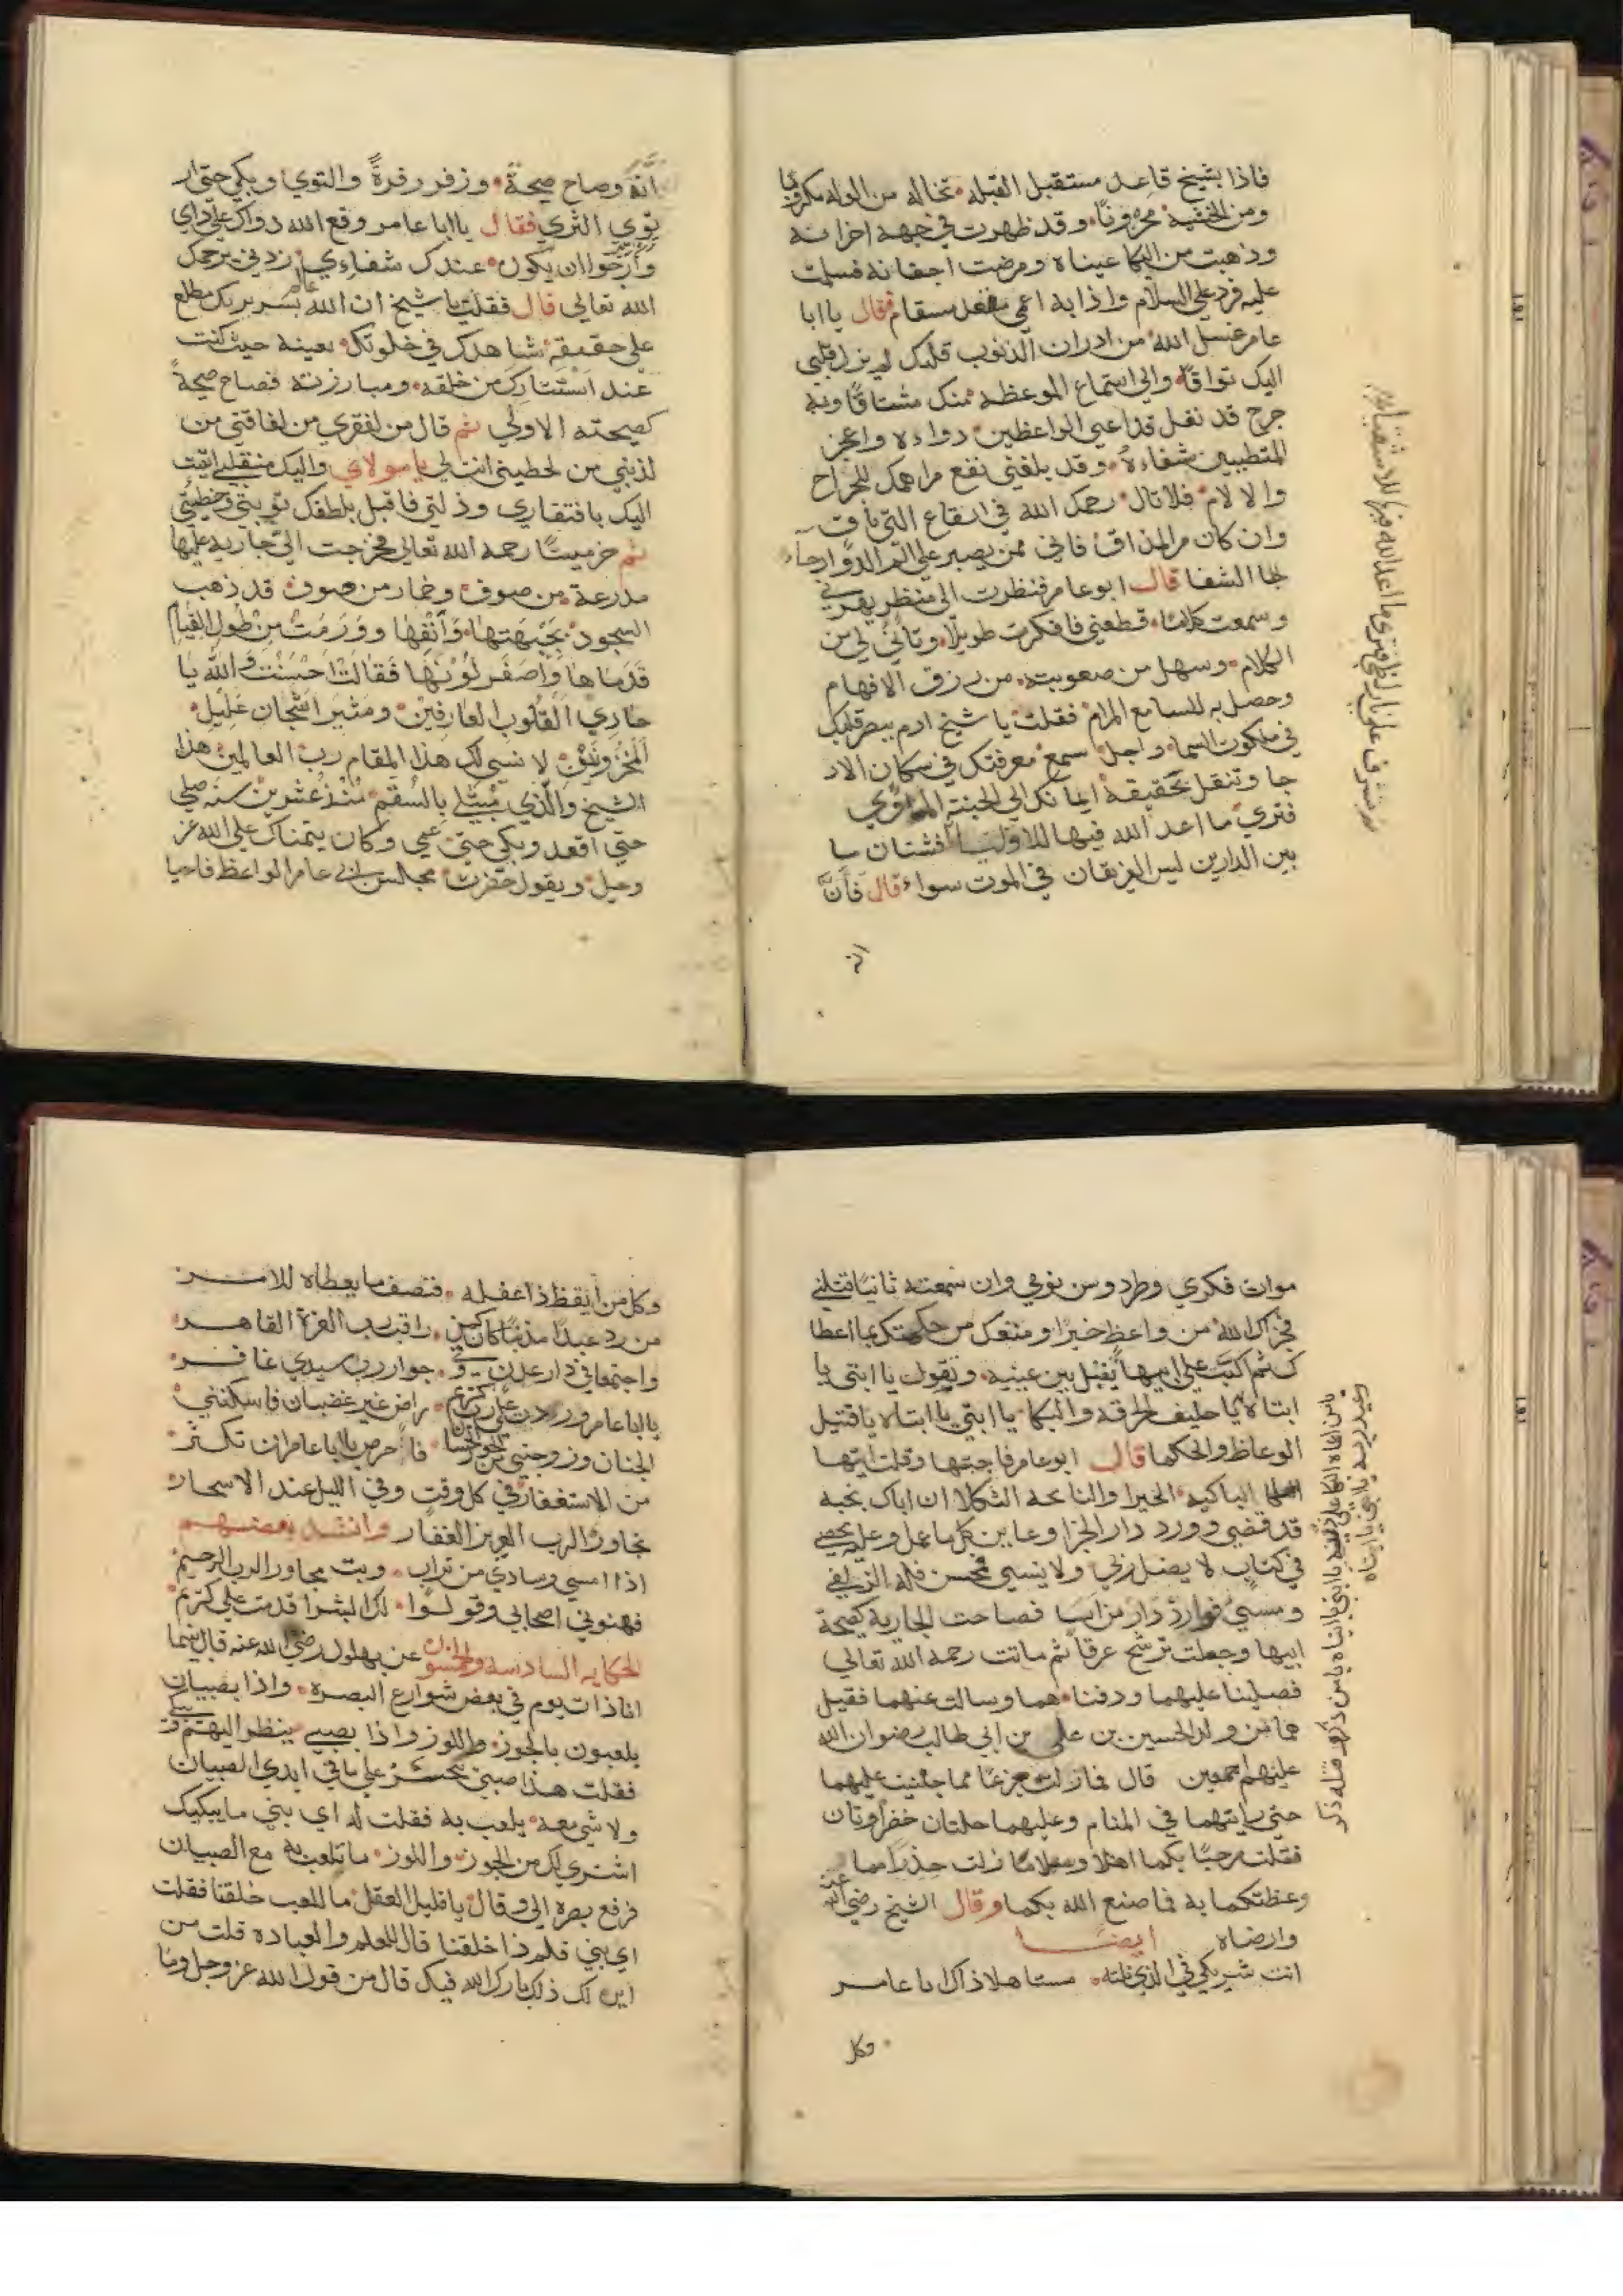 فاذا بشيخ قاعد مستقبل القبله تخاله من الوله مكروبا
ومن الخشيه محزونا وقد ظهرت في جبهه احزانه
وذهبت من البكا عيناه ومرضت اجفانه فسلمت
عليه فرد علي السلام واذا به اعمى مقعد مسقام فقال يا ابا
عامر غسل الله من ادران الذنوب قلبك لم يزل قلبي
اليك تواقا والى استماع الموعظه منك مشتاقا وبه
جرح قد نغل قد اعيى الواعظين دواءه واعجز
المتطببين شفاءه وقد بلغني نفع مراهمك للجراح
والالام فلا تال رحمك الله في ايقاع الترياق
وان كان مر المذاق فاني ممن يصبر على الم الدوا رجاء
لها الشفا قال ابو عامر فنظرت الى منظر بهرني
وسمعت كلاما قطعني فافكرت طويلا وتاتي لي من
الكلام وسهل من صعوبته من رزق الافهام
وحصل به للسامع المرام فقلت يا شيخ ارم ببصر قلبك
في ملكوت السما واجل سمع معرفتك في سكان الار
جا وتنقل بحقيقة ايمانك الى الجنة الماوي
فتري ما اعد الله فيها للاوليا فشتان ما
بين الدارين ليس الفريقان في الموت سواء قال فأنَّ
انه
ثم تشرف على نار لظى فتري ما اعد الله فيها للاشقياء
انَّةً وصاح صيحة وزفر زفرةً والتوي وبكي حتى ار
توي الثري فقال يا ابا عامر وقع الله دواك على داي
وارجوا ان يكون عندك شفاءي زدني يرحمك
الله تعالى قال فقلت يا شيخ ان الله عالم بسريرتك مطلع
على حقيقة شاهدك في خلوتك بعينه حيث كنت
عند استتارك من خلقه ومبارزته فصاح صيحةً
كصيحته الاولي ثم قال من لفقري من لفاقتي من
لذنبي من لخطيئتي انت لي يا مولاي واليك منقلبي اتيت
اليك بافتقاري وذلتي فاقبل بلطفك توبتي وخطيئتي
ثم خر ميتا رحمه الله تعالى فخرجت الي جاريه عليها
مدرعة من صوف وخمار من صوف قد ذهب
السجود بجَبْهَتها وَأنْفِها ووَرَمَتْ مِنْ طُول القيام
قَدَمَاها وَاصفَر لَوْنُها فَقَالَتْ احْسَنْت وَالله يَا
حَادِي القُلُوب العارفين ومثيَر اشجان غليل
المَحزُونين لا نسي لك هذا المقام رب العالمين هذا
الشيخ والّذي مُبتلي بالسُقم مُنذ عشرين سنه صلي
حتى اقعد وبكي حتى عمي وكان يتمناك على الله عز
وجل ويقول حضرت مجالس ابي عامر الواعظ فاحيا
موات فكري وطرد وسن نومي وان سمعته ثانيا قتلني
فجزاك الله من واعظ خيرا ومتعك من حكمتك بما اعطا
ك ثم اكبت على ابيها تقبل بين عينيه وتقول يا ابتي يا
ابتاه يا حليف الحرقه والبكا يا ابتي يا ابتاه يا قتيل
الوعاظ والحكما قال ابو عامر فاجبتها وقلت ايتها
الباكيه الحيرا والنائحه الثكلا ان اباك نحبه
قد قضي وورد دار الجزا وعاين كل ما عمل وعليه يحصي
في كتاب لا يضل ربي ولا ينسي محسن فله الزلفي
ومسيئ فوارد دار من اسا فصاحت الجاريه كصيحة
ابيها وجعلت ترشح عرقاً ثم ماتت رحمه الله تعالي
فصلينا عليهما ودفناهما وسالت عنهما فقيل
هما من ولد الحسين بن علي بن ابي طالب رضوان الله
عليهم اجمعين قال فما زلت جزعا مما جنيت عليهما
حتى رايتهما في المنام وعليهما حلتان خضراوتان
فقلت مرحبا بكما اهلا وسهلا ما زلت حذرا مما
وعظتكما به فما صنع الله بكما وقال الشيخ رضي الله عنه
وارضاه ايضا
انت شريكي في الذي نلته مستاهلا ذاك ابا عامر
وكل
وكل من ايقظ ذا غفله فنصف ما يعطاه للامر
من رد عبدا مذنبا كان كمن راقب رب العزة القاهر
واجتمعا في دار عدن وفي جوار رب سيدي غافر
يا ابا عامر وردت على رب كريم راض غير غضبان فاسكنني
الجنان وزوجني من الحور الحسان فاحرص يا ابا عامر ان تكثر
من الاستغفار في كل وقت وفي الليل عند الاسحار
تجاور الرب العزيز الغفار وانشد بعضهم
اذا امسي وسادي من تراب وبت مجاور الرب الرحيم
فهنوني اصحابي وقولوا لك البشرا قدمت على كريم
الحكايه السادسه والخمسون عن بهلول رضي الله عنه قال بينما
انا ذات يوم في بعض شوارع البصره واذا بصبيان
يلعبون بالجوز واللوز واذا بصبي ينظر اليهم ويبكي
فقلت هذا صبي يتحسر على ما في ايدي الصبيان
ولا شي معه يلعب به فقلت له اي بني ما يبكيك
اشتري لك من الجوز واللوز ما تلعب به مع الصبيان
فرفع بصره الي وقال يا قليل العقل ما للعب خلقنا فقلت
اي بني فلم ذا خلقنا قال للعلم والعباده قلت من
اين لك ذلك بارك الله فيك قال من قول الله عز وجل وما